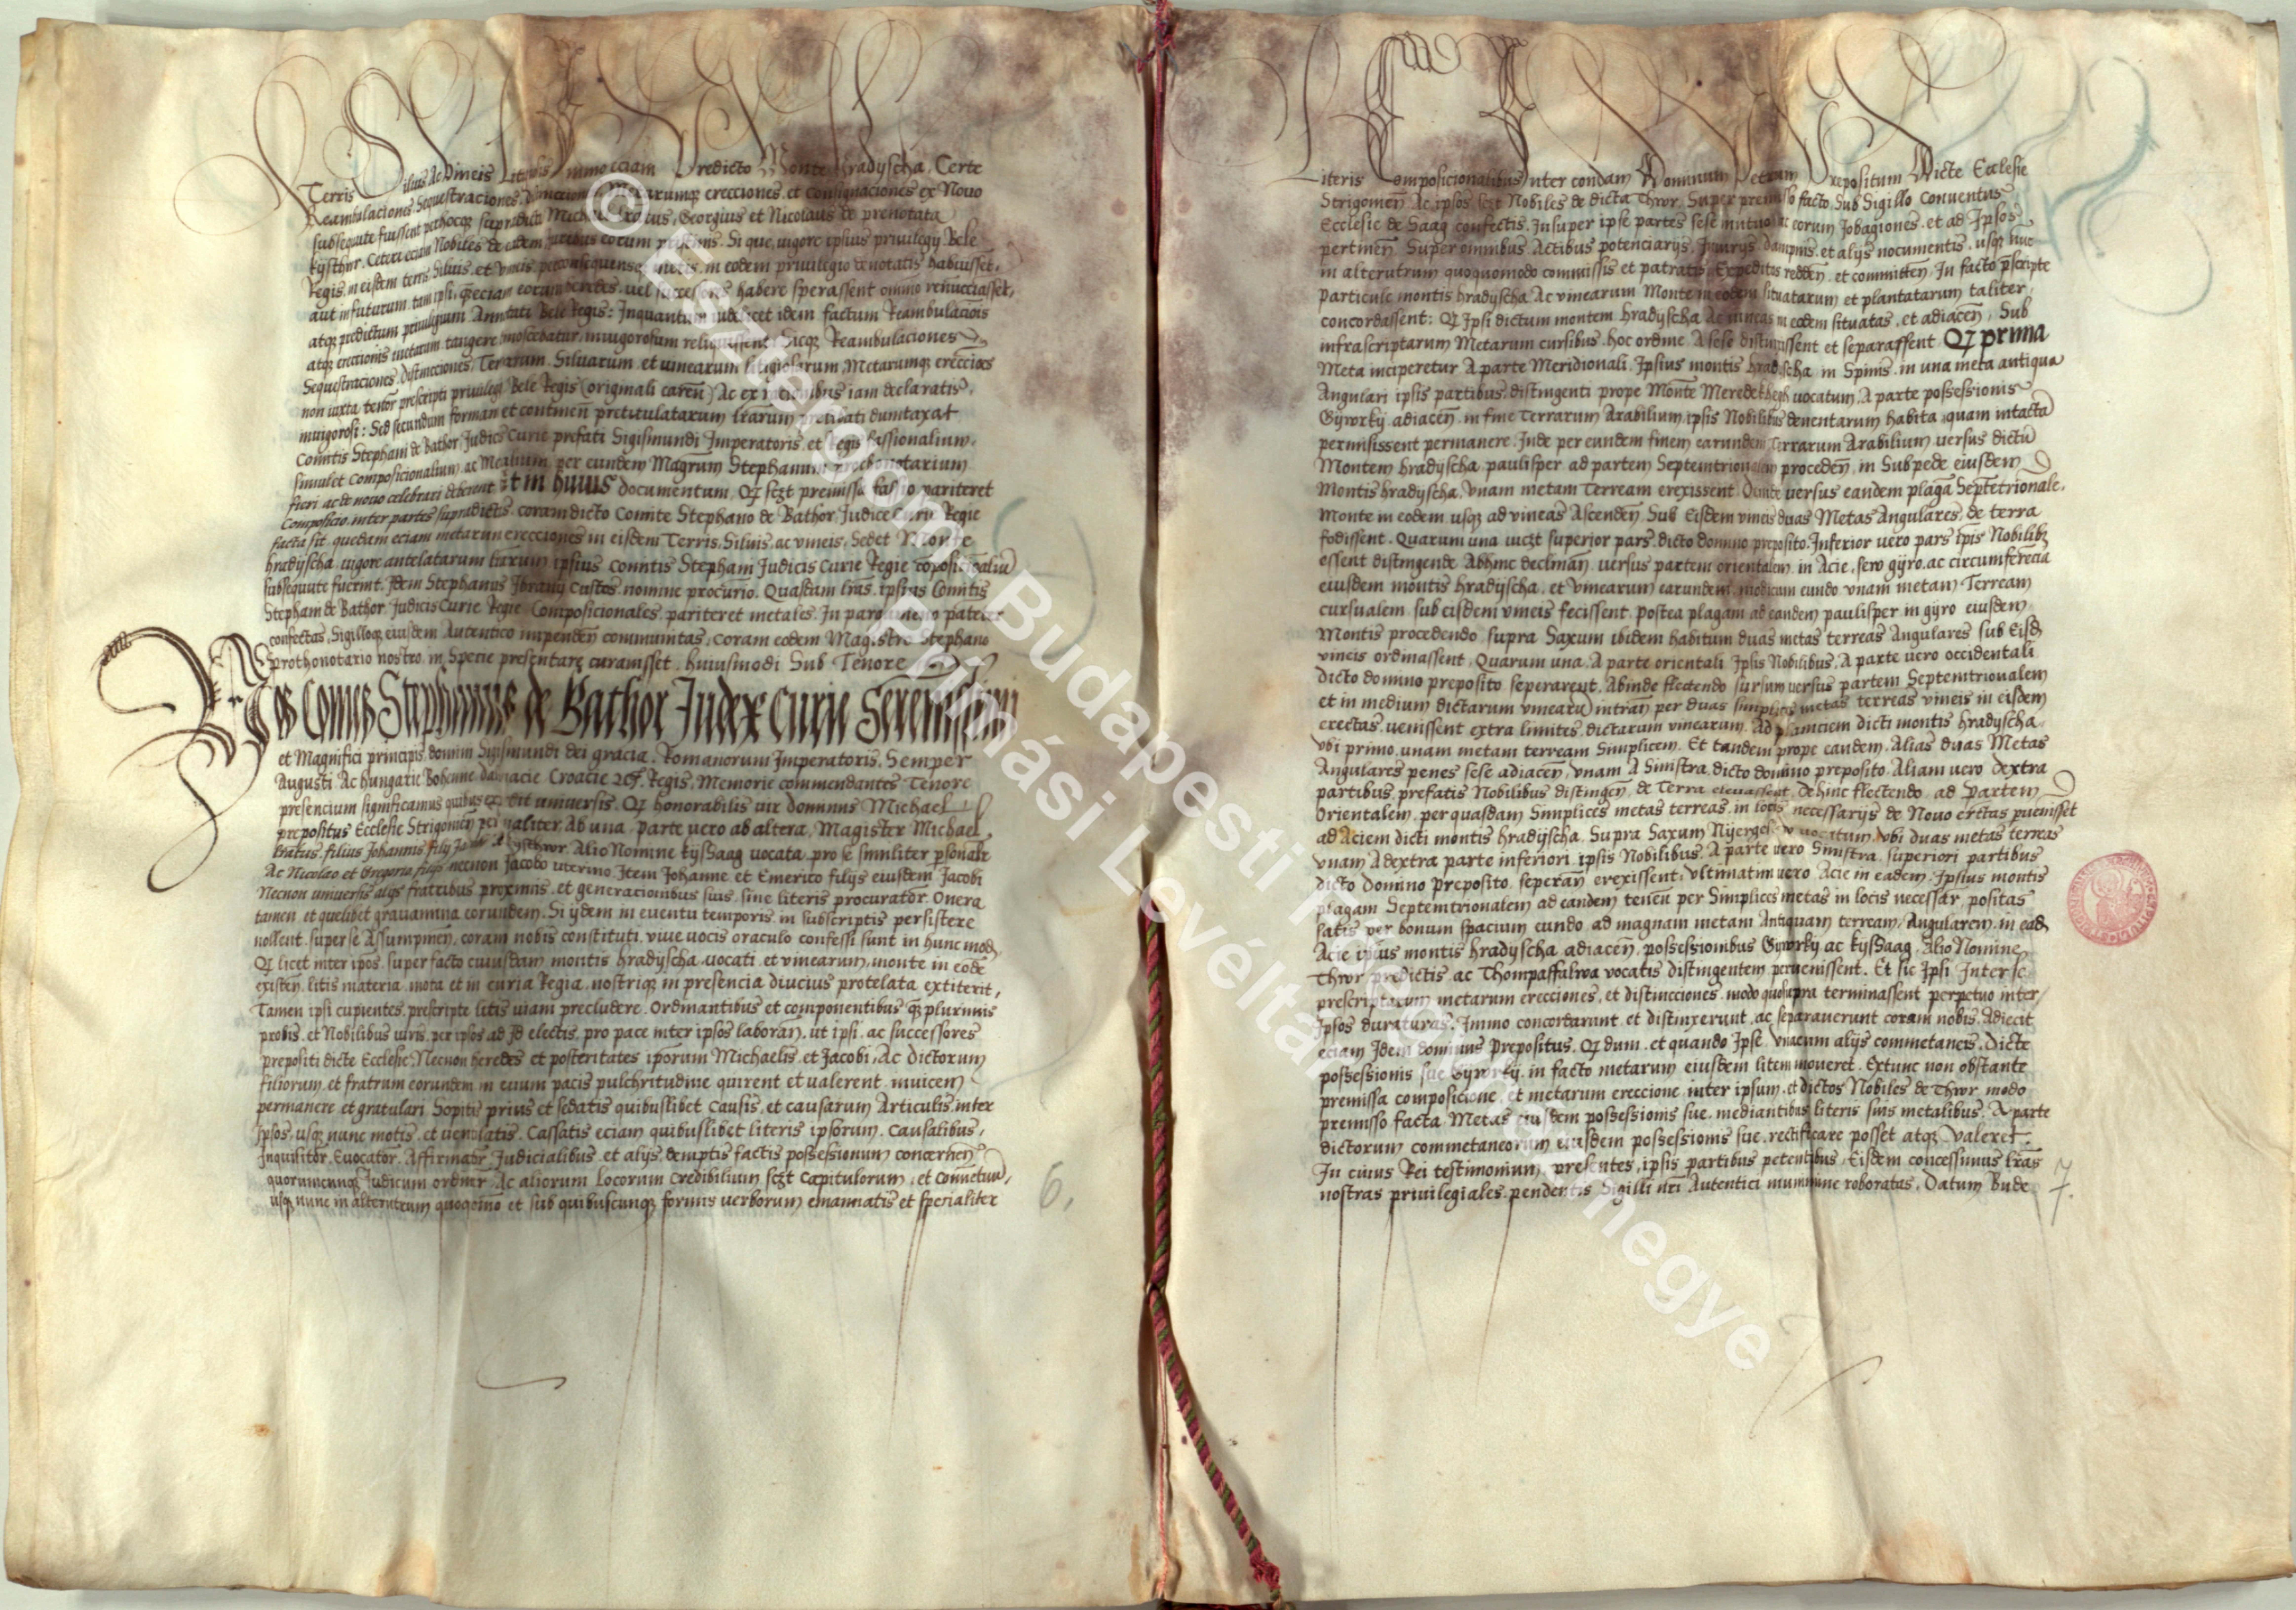 Terris Siluis Ac Vineis Litigiosis Immo eciam Predicto Monte Hradyscha, Certe
Reambulaciones Sequestraciones Metarumque erecciones et Consignaciones ex Nouo
subsequute fuissent Georgius et Nicolaus de prenotata
Kysthur Ceteri eciam Nobiles de eadem Juribus eorum pristinis. Si que uigore ipsius priuilegy Bele
Regis in eisdem terris Siluis et Vineis in eodem priuilegio denotatis habuissent,
aut in futurum tam ipsi, heredes uel successores habere sperassent omnino renucciassent,
atque predictum priuilegium Annotati Bele Regis: Inquantum uidelicet idem factum Reambulacionis
atque ereccionis metarum tangere inuigorosum reliquissent Sicque Reambulaciones
Sequestraciones distincciones Terrarum Siluarum et uinearum litigiosarum, Metarumque erecciones
non iuxta tenorem prescripti priuilegy Bele Regis (originali caren) Ac ex racionibus iam declaratis
inuigorosi: Sed secundum formam et continen pretitulatarum lrarum dumtaxat
Comitis Stephani de Bathor Judicis Curie prefati Sigismundi Imperatoris et Regis fassionalium
simulet Composicionalium ac Metalium per eundem Magrum Stephanum prothonotarium
fieri ac de nouo celebrari deberent Et in huius documentum, Qz sczt premissa fassio pariteret
Composicio inter partes supradictas coram dicto Comite Stephano de Bathor Judice Curie Regie
facta sit quedam eciam metarum erecciones in eisdem Terris, Siluis, ac vineis, Sedet Monte
hradyscha uigore antelatarum lrarum ipsius Comitis Stephani Judicis Curie Regie coposicionaliu
subsequute fuerint. Idem Stephanus Custos nomine Quasdam lras ipsius Comitis
Stephani de Bathor Judicis Curie Regie Composicionales pariteret metales In pargameno patenter
confectas, Sigilloque eiusdem Autentico impenden communitas, coram eodem Magistro Stephano
prothonotario nostro in Specie presentare curauisset, huiusmodi Sub Tenore
Nos Comes Stephanus de Bathor Judex Curie Serenissimi
et Magnifici principis domini Sigismundi dei gracia Romanorum Imperatoris Semper
Augusti Ac hungarie Bohemie dalmacie Croacie 2cf. Regis, Memorie commendantes Tenore
presencium significamus quibus expedit uniuersis. Qz honorabilis uir dominus Michael
prepositus Ecclesie Strigonien personaliter Ab una parte uero ab altera Magister Michael
filius Johannis Alio Nomine kyssaag uocata pro se similiter psonalr
Ac Nicolao et Gregorio filys necnon Jacobo uterino Item Johanne et Emerico filys eiusdem Jacobi
Necnon uniuersis alys fratribus proximis et generacionibus suis sine literis procurator Onera
tamen et quelibet grauamina eorundem Si ijdem in euentu temporis in subscriptis persistere
nollent super se Assumpmen, coram nobis constituti uiue uocis oraculo confessi sunt in hunc mod
Qz licet inter ipos super facto cuiusdam montis hradyscha uocati et vinearum, monte in eode
existen litis materia mota et in curia Regia nostrique in presencia diucius protelata extiterit,
Tamen ipsi cupientes prescripte litis uiam precludere. Ordinantibus et componentibus qz plurimis
probis et Nobilibus uiris per ipsos ad Id electis pro pace inter ipsos laboran, ut ipsi ac successores
prepositi dicte Ecclesie, Necnon heredes et posteritates iporum Michaelis et Jacobi, Ac dictorum
filiorum et fratrum eorundem in euum pacis pulchritudine quirent et ualerent inuicem
permanere et gratulari Sopitis prius et sedatis quibuslibet Causis et causarum Articulis inter
Ipsos, usqz nunc motis et uentilatis. Cassatis eciam quibuslibet literis ipsorum Causalibus,
Inquisitor Euocator Affirmator Judicialibus et alys demptis factis possessionum concernen
quorumcunqz Judicum ordinr Ac aliorum Locorum Credibilium sczt Capitulorum, et Conuentuu,
usqz nunc in alterutrum quoqomo et sub quibuscunqz formis uerborum emannatis et specialiter
6.
Literis Composicionalibus Inter condam Dominum Petrum Prepositum Dicte Ecclesie
Strigomen Ac ipsos sczt Nobiles de dicta Thwr Super premisso facto Sub Sigillo Conuentus
Ecclesie de Saag confectis. Insuper ipse partes sese mutuo ac eorum Jobagiones et ad Ipsos
pertinen Super omnibus Actibus potenciarys Iniurys dampnis et alys nocumentis usqz nuc
in alterutrum quoquomodo commissis et patratis Expeditos redden et committen, In facto pscripte
particule montis hradyscha Ac vinearum Monte in eodem situatarum et plantatarum taliter
concordassent: Qz Ipsi dictum montem hradyscha Ac uineas in eodem situatas et adiacen, Sub
infrascriptarum Metarum cursibus hoc ordine A sese distinxissent et separassent Qz prima
Meta inciperetur A parte Meridionali Ipsius montis hradischa in Spinis in una meta antiqua
Angulari ipsis partibus distingenti prope Monte Meredekhegh uocatum A parte possessionis
Gywrky adiacen in fine Terrarum Arabilium ipsis Nobilibus deuentarum habita quam intacta
permisissent permanere Inde per eundem finem earundem Terrarum Arabilium uersus dictu
Montem hradyscha paulisper ad partem Septemtrionalem proceden in Subpede eiusdem
Montis hradyscha Vnam metam Terream erexissent Deinde uersus eandem plaga Septetrionale,
Monte in eodem usqz ad uineas Ascenden Sub Eisdem vineis duas Metas Angulares de terra
fodissent. Quarum una uiczt superior pars dicto domino preposito Inferior uero pars ipis Nobilibz
essent distingende Abhinc declinan uersus partem orientalem in Acie seu gyro ac circumferecia
eiusdem montis hradyscha, et Vinearum earundem modicum eundo vnam metam Terream
cursualem sub eisdem vineis fecissent, postea plagam ad eandem paulisper in gyro eiusdem
Montis procedendo supra Saxum ibidem habitum duas metas terreas Angulares sub Eisd
vineis ordinassent, Quarum una A parte orientali Ipsis Nobilibus A parte uero occidentali
dicto domino preposito seperarent Abinde flectendo sursum uersus partem Septemtrionalem
et in medium dictarum vinearu intran per duas simplices metas terreas vineis in eisdem
erectas uenissent extra limites dictarum vinearum Ad planiciem dicti montis hradyscha
Vbi primo unam metam terream Simplicem Et tandem prope eandem Alias duas Metas
Angulares penes sese adiacen, vnam A Sinistra dicto domino preposito Aliam uero dextra
partibus prefatis Nobilibus distingen de Terra eleuassent Dehinc flectendo ad Partem
Orientalem per quasdam Simplices metas terreas in locis necessarys de Nouo erectas puenisset
ad Aciem dicti montis hradyscha Supra Saxum uocitum, Vbi duas metas terreas
vnam A dextra parte inferiori ipsis Nobilibus A parte uero Sinistra superiori partibus
dicto domino preposito seperan erexissent, Vltimatim uero Acie in eadem Ipsius montis
plagam Septemtrionalem ad eandem tenen per Simplices metas in locis necessar positas
satis per bonum spacium eundo ad magnam metam Antiquam terream Angularem in ead
Acie ipsius montis hradyscha adiacen, possessionibus Gywrky ac kyssaag Alio Nomine
Thwr predictis ac Thompaffalwa vocatis distingentem peruenissent. Et sic Ipsi Inter se
prescriptarum metarum erecciones et distincciones modo quosupra terminassent perpetuo inter
Ipsos duraturas. Immo concordarunt et distinxerunt ac separauerunt coram nobis Adiecit
eciam Idem dominus prepositus Qz dum et quando Ipse Vnacum alys commetaneis dicte
possessionis sue Gywrky in facto metarum eiusdem litem moueret Extunc non obstante
premissa composicione et metarum ereccione inter ipsum et dictos Nobiles de Thwr modo
premisso facta Metas eiusdem possessionis sue mediantibus literis suis metalibus A parte
dictorum commetaneorum eiusdem possessionis sue rectificare posset atqz Valeret.
In cuius Rei testimonium presentes ipsis partibus petentibus Eisdem concessimus lras
nostras priuilegiales pendentis Sigilli nri Autentici munimine roboratas, Datum Bude
7.
© Esztergom-Budapesti Főegyházmegye
Prímási Levéltár